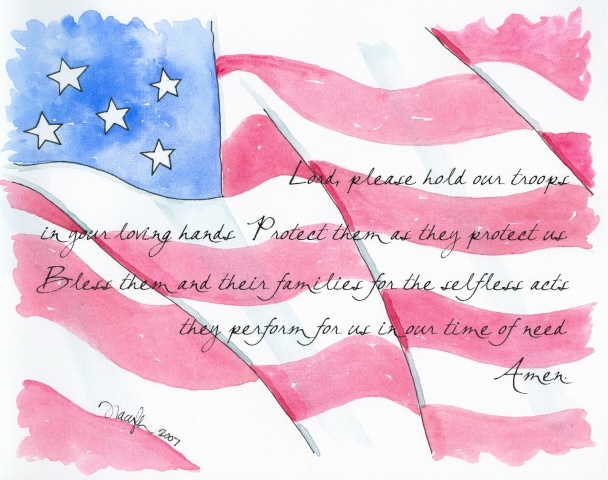 Lord, please hold our troops
in your loving hands Protect them as they protect us
Bless them and their families for the selfless acts
they perform for us in our time of need
Amen.
2007